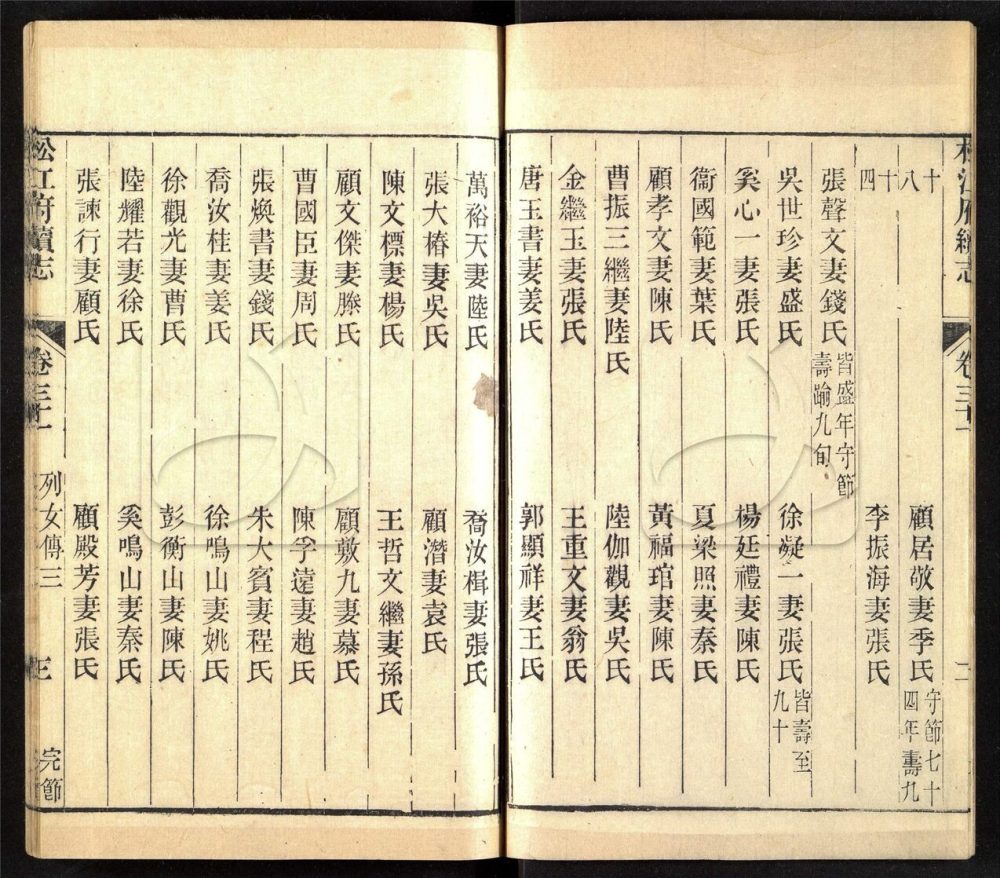 松江府續志 卷三十一 二
十八
顧居敬妻季氏 守節七十四年壽九
十四
李振海妻張氏
張聲文妻錢氏 皆盛年守節壽踰九旬
吳世珍妻盛氏 徐凝一妻張氏 皆壽至九十
奚心一妻張氏 楊廷禮妻陳氏
衞國範妻葉氏 夏梁照妻秦氏
顧孝文妻陳氏 黃福琯妻陳氏
曹振三繼妻陸氏 陸伽觀妻吳氏
金繼玉妻張氏 王重文妻翁氏
唐玉書妻姜氏 郭顯祥妻王氏
萬裕天妻陸氏 喬汝楫妻張氏
張大椿妻吳氏 顧潛妻袁氏
陳文標妻楊氏 王哲文繼妻孫氏
顧文傑妻滕氏 顧敳九妻慕氏
曹國臣妻周氏 陳孚遠妻趙氏
張煥書妻錢氏 朱大賓妻程氏
喬汝桂妻姜氏 徐鳴山妻姚氏
徐觀光妻曹氏 彭衡山妻陳氏
陸耀若妻徐氏 奚鳴山妻秦氏
張諫行妻顧氏 顧殿芳妻張氏
松江府續志 卷三十一 列女傳三 三 完節